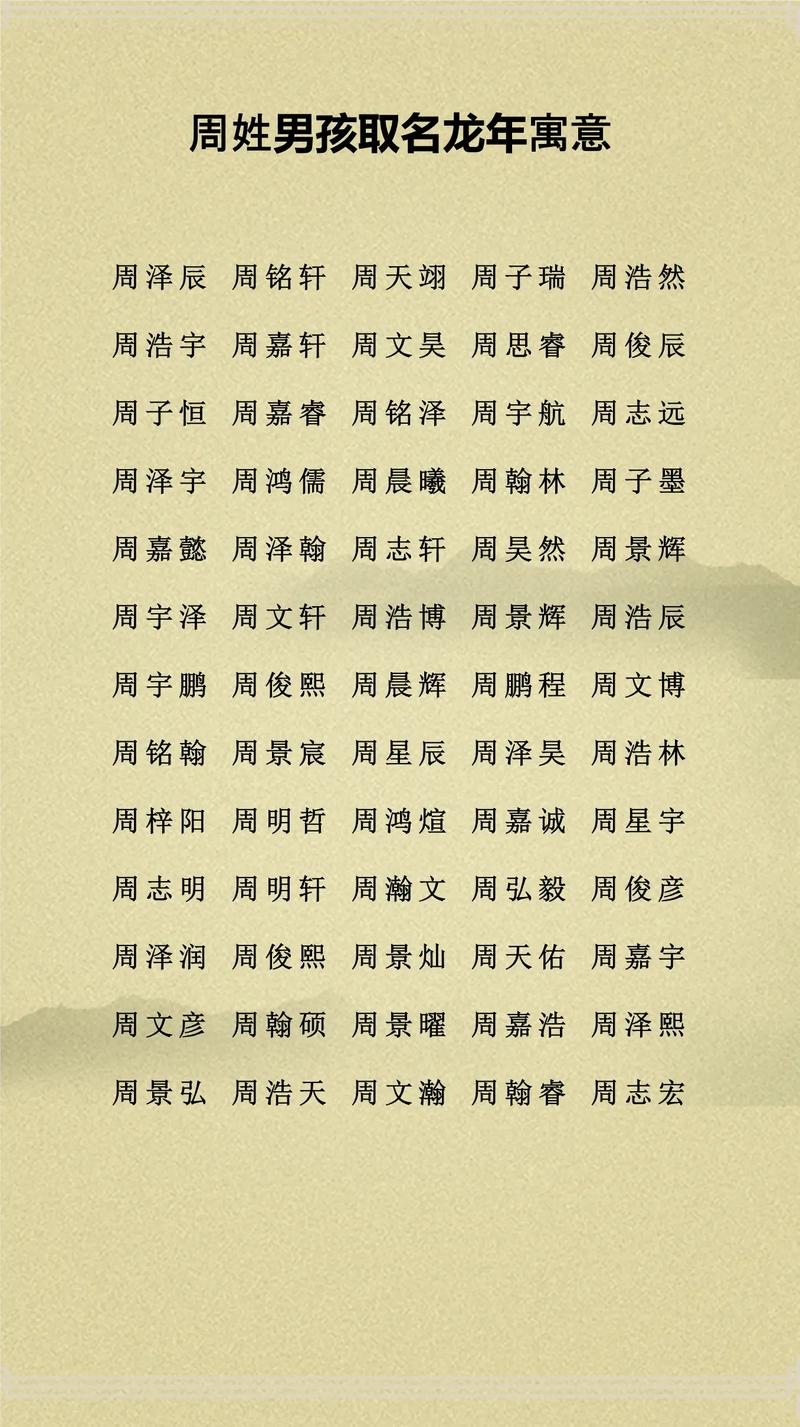 周姓男孩取名龙年寓意
周泽辰 周铭轩 周天翊 周子瑞 周浩然
周浩宇 周嘉轩 周文昊 周思睿 周俊辰
周子恒 周嘉睿 周铭泽 周宇航 周志远
周泽宇 周鸿儒 周晨曦 周翰林 周子墨
周嘉懿 周泽翰 周志轩 周昊然 周景辉
周宇泽 周文轩 周浩博 周景辉 周浩辰
周宇鹏 周俊熙 周晨辉 周鹏程 周文博
周铭翰 周景宸 周星辰 周泽昊 周浩林
周梓阳 周明哲 周鸿煊 周嘉诚 周星宇
周志明 周明轩 周瀚文 周弘毅 周俊彦
周泽润 周俊熙 周景灿 周天佑 周嘉宇
周文彦 周翰硕 周景曜 周嘉浩 周泽熙
周景弘 周浩天 周文瀚 周翰睿 周志宏